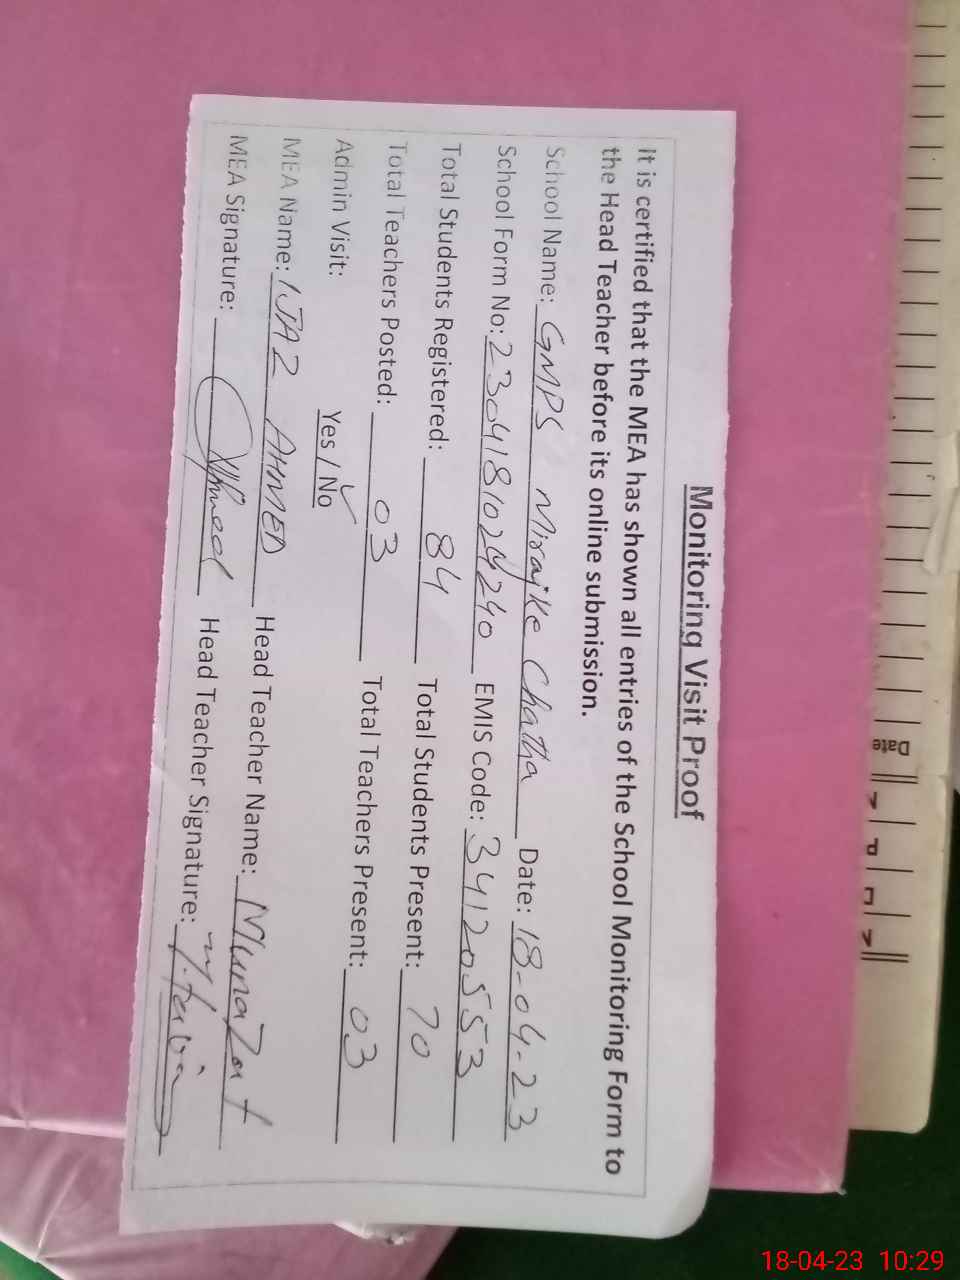 Monitoring Visit Proof
It is certified that the MEA has shown all entries of the School Monitoring Form to
the Head Teacher before its online submission.
School Name: GMPS Mirajke Chatha Date: 18-04-23
School Form No: 2304181024240 EMIS Code: 34120553
Total Students Registered: 84 Total Students Present: 70
Total Teachers Posted: 03 Total Teachers Present: 03
Admin Visit: Yes / No
MEA Name: IJAZ AHMED Head Teacher Name:
MEA Signature: Head Teacher Signature:
Date
18-04-23 10:29